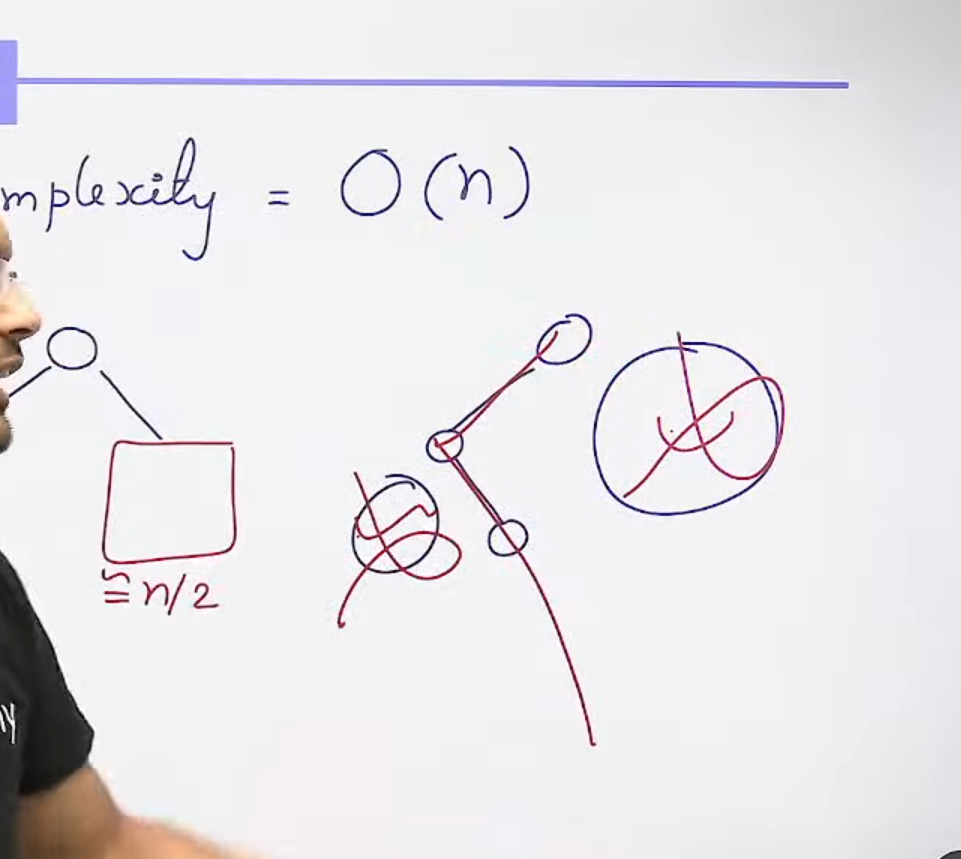 mplexity = O(n)
≅ n/2